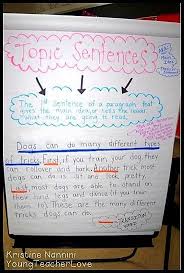 Topic Sentences
The 1st sentence of a paragraph that
gives the main idea or tells the reader
what they are going to read.
Dogs can do many different types
of tricks. First, if you train your dog, they
can rollover and bark. Another trick most
dogs can do is sit and look pretty.
Last, most dogs are able to stand on
their hind legs and dance if you train
them to. These are the many different
tricks dogs can do.
Kristine Nannini
YoungTeacherLove